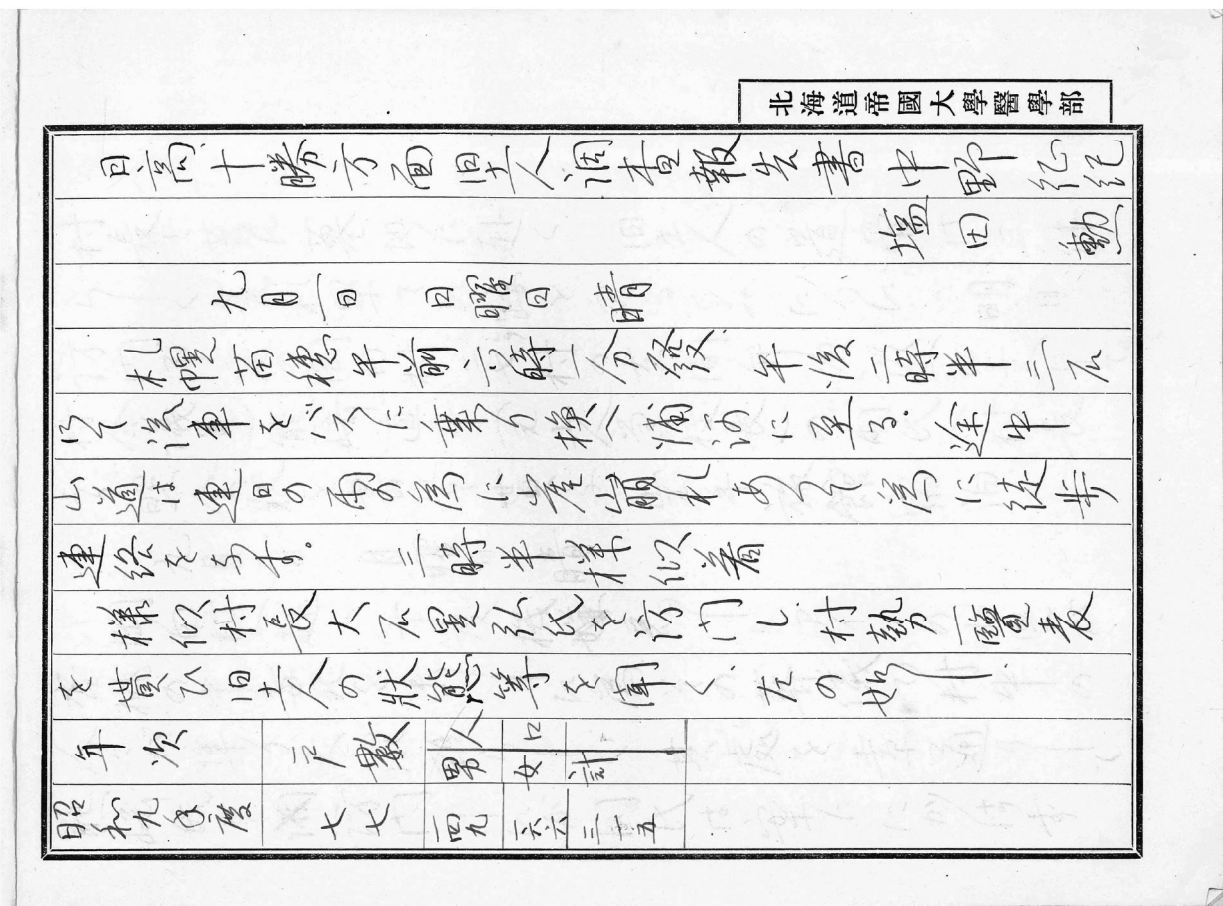 北海道帝國大學醫學部
日高十勝方面旧土人調査報告書 中野
塩田 勳
九月一日 日曜日 晴
札幌苗穂午前六時八分發 午後二時半三石
にて汽車をバスに乗り換へ浦河に至る.途中
山道は連日の雨の為に崖崩れあり為に徒歩
連絡をなす。 三時半様似着
様似村長大石 氏を訪問し村勢一覽表
を貰ひ旧土人の狀態等を聞く、左の如し.
年次 戸數 人口 男 女 計
昭和九年度 七七 一四九 一六六 三一五